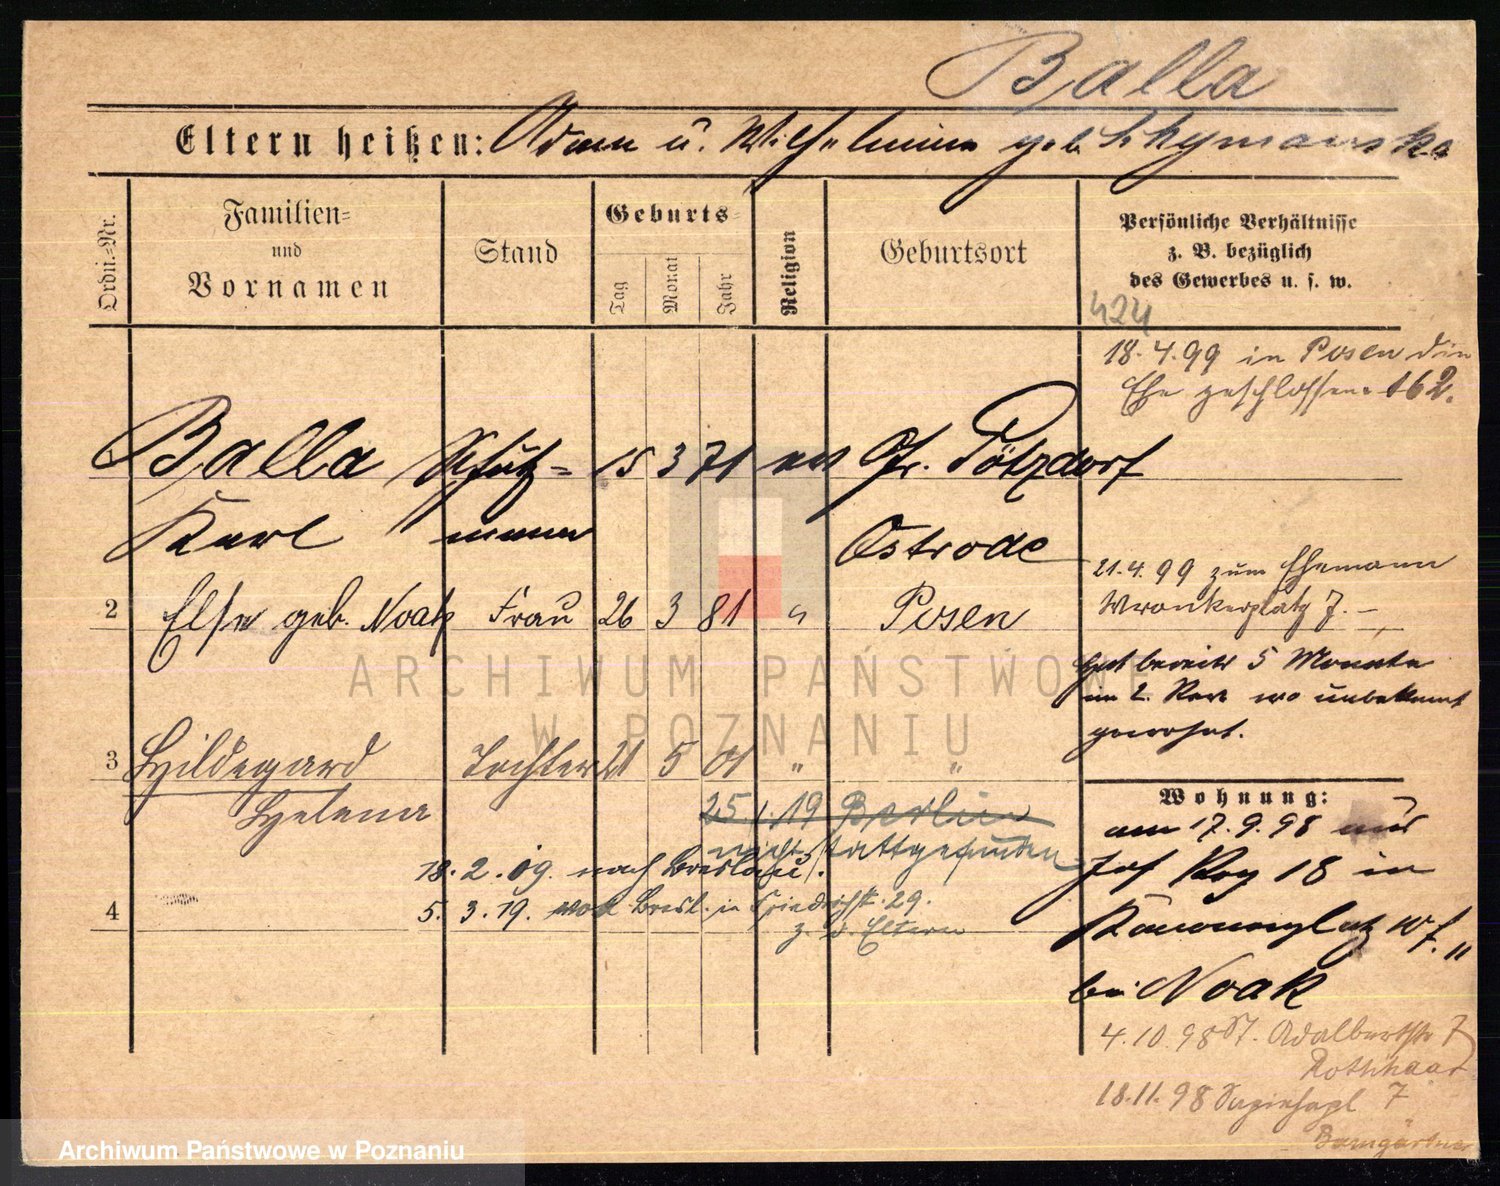 Balla
Eltern heißen: Adam u. Wilhelmine geb.
Ordn.=Nr.
Familien= und Vornamen
Stand
Geburts=
Tag Monat Jahr
Religion
Geburtsort
Persönliche Verhältnisse
z. B. bezüglich
des Gewerbes u. s. w.
424
18.4.99 in Posen die
Ehe geschlossen 162.
Balla Schutz= 15 3 71 ev Gr. Pötzdorf
Karl mann Osterode
21.4.99 zum Ehemann
Wronkerplatz 7.
2 Else geb. Noak Frau 26 3 81 " Posen
Hat bereits 5 Monate
im 2. Rev. wo unbekannt
gewohnt.
3 Hildegard Tochter 21 5 01 " "
Helena
25.1.19 Berlin
nicht stattgefunden
18.2.09. nach Breslau.
4 5.3.19. von Bresl. in Friedrichstr. 29.
z. d. Eltern
Wohnung:
am 17.9.98 aus
Inf Reg 18 in
Kanonenplatz No 11
bei Noak
4.10.98 St. Adalbertstr 7
Rothhaar
18.11.98 7
Baumgärtner
ARCHIWUM PAŃSTWOWE
W POZNANIU
Archiwum Państwowe w Poznaniu